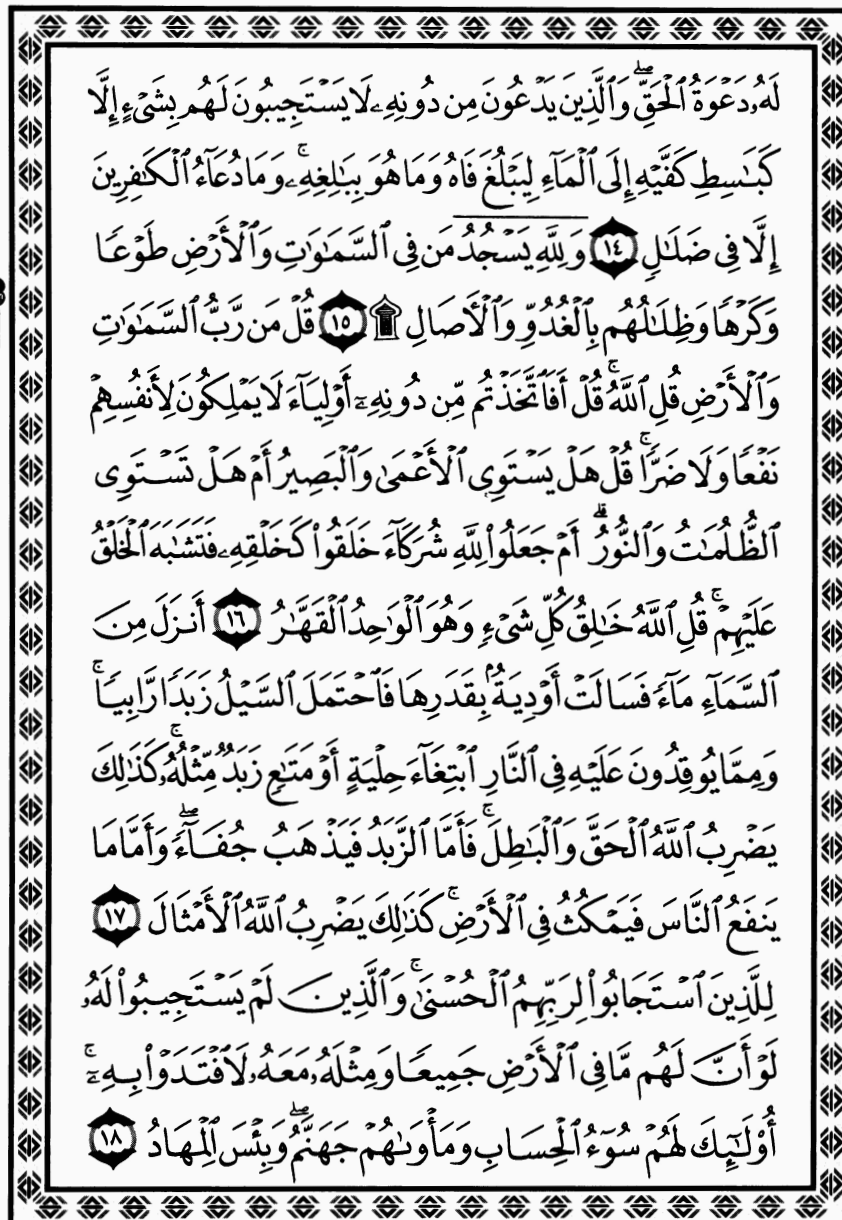 لَهُۥ دَعْوَةُ ٱلْحَقِّۖ وَٱلَّذِينَ يَدْعُونَ مِن دُونِهِۦ لَا يَسْتَجِيبُونَ لَهُم بِشَىْءٍ إِلَّا
كَبَٰسِطِ كَفَّيْهِ إِلَى ٱلْمَآءِ لِيَبْلُغَ فَاهُ وَمَا هُوَ بِبَٰلِغِهِۦۚ وَمَا دُعَآءُ ٱلْكَٰفِرِينَ
إِلَّا فِى ضَلَٰلٍ ١٤ وَلِلَّهِ يَسْجُدُ مَن فِى ٱلسَّمَٰوَٰتِ وَٱلْأَرْضِ طَوْعًا
وَكَرْهًا وَظِلَٰلُهُم بِٱلْغُدُوِّ وَٱلْأَصَالِ ۩ ١٥ قُلْ مَن رَّبُّ ٱلسَّمَٰوَٰتِ
وَٱلْأَرْضِ قُلِ ٱللَّهُۚ قُلْ أَفَٱتَّخَذْتُم مِّن دُونِهِۦٓ أَوْلِيَآءَ لَا يَمْلِكُونَ لِأَنفُسِهِمْ
نَفْعًا وَلَا ضَرًّاۚ قُلْ هَلْ يَسْتَوِى ٱلْأَعْمَىٰ وَٱلْبَصِيرُ أَمْ هَلْ تَسْتَوِى
ٱلظُّلُمَٰتُ وَٱلنُّورُۗ أَمْ جَعَلُوا۟ لِلَّهِ شُرَكَآءَ خَلَقُوا۟ كَخَلْقِهِۦ فَتَشَٰبَهَ ٱلْخَلْقُ
عَلَيْهِمْۚ قُلِ ٱللَّهُ خَٰلِقُ كُلِّ شَىْءٍ وَهُوَ ٱلْوَٰحِدُ ٱلْقَهَّٰرُ ١٦ أَنزَلَ مِنَ
ٱلسَّمَآءِ مَآءً فَسَالَتْ أَوْدِيَةٌۢ بِقَدَرِهَا فَٱحْتَمَلَ ٱلسَّيْلُ زَبَدًا رَّابِيًاۚ
وَمِمَّا يُوقِدُونَ عَلَيْهِ فِى ٱلنَّارِ ٱبْتِغَآءَ حِلْيَةٍ أَوْ مَتَٰعٍ زَبَدٌ مِّثْلُهُۥۚ كَذَٰلِكَ
يَضْرِبُ ٱللَّهُ ٱلْحَقَّ وَٱلْبَٰطِلَۚ فَأَمَّا ٱلزَّبَدُ فَيَذْهَبُ جُفَآءًۖ وَأَمَّا مَا
يَنفَعُ ٱلنَّاسَ فَيَمْكُثُ فِى ٱلْأَرْضِۚ كَذَٰلِكَ يَضْرِبُ ٱللَّهُ ٱلْأَمْثَالَ ١٧
لِلَّذِينَ ٱسْتَجَابُوا۟ لِرَبِّهِمُ ٱلْحُسْنَىٰۚ وَٱلَّذِينَ لَمْ يَسْتَجِيبُوا۟ لَهُۥ
لَوْ أَنَّ لَهُم مَّا فِى ٱلْأَرْضِ جَمِيعًا وَمِثْلَهُۥ مَعَهُۥ لَٱفْتَدَوْا۟ بِهِۦٓۚ
أُو۟لَٰٓئِكَ لَهُمْ سُوٓءُ ٱلْحِسَابِ وَمَأْوَىٰهُمْ جَهَنَّمُۖ وَبِئْسَ ٱلْمِهَادُ ١٨